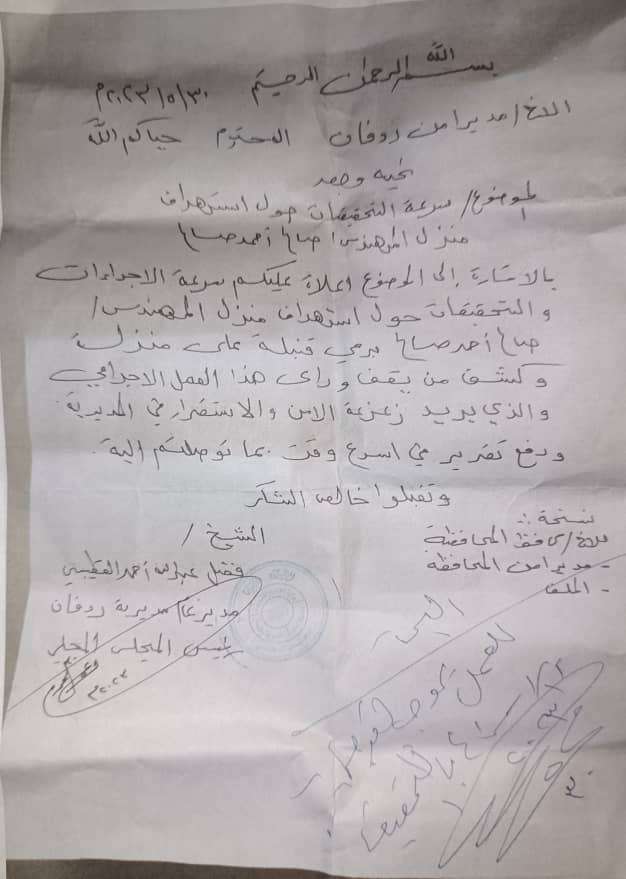 بسم الله الرحمن الرحيم ٢٠٢٣/٥/٣٠م
الاخ/ مدير امن ردفان المحترم حياكم الله
تحيه وبعد
الموضوع/ سرعة التحقيقات حول استهداف
منزل المهندس/ صالح أحمد صالح
بالاشارة إلى الموضوع اعلاة عليكم سرعة الاجراءات
والتحقيقات حول استهداف منزل المهندس/
صالح أحمد صالح برمي قنبلة على منزلة
وكشف من يقف وراى هذا العمل الاجرامي
والذي يريد زعزعة الامن والاستقرار في المديرية
ودفع تقرير في اسرع وقت بما توصلتم الية.
وتقبلوا خالص الشكر
نسخة :-
للاخ/ محافظ المحافظة
- مدير امن المحافظة
- الملف
الشيخ/
فضل عبدالله أحمد القطيبي
مدير عام مديرية ردفان
رئيس المجلس المحلي
٢٠٢٣م
للعمل